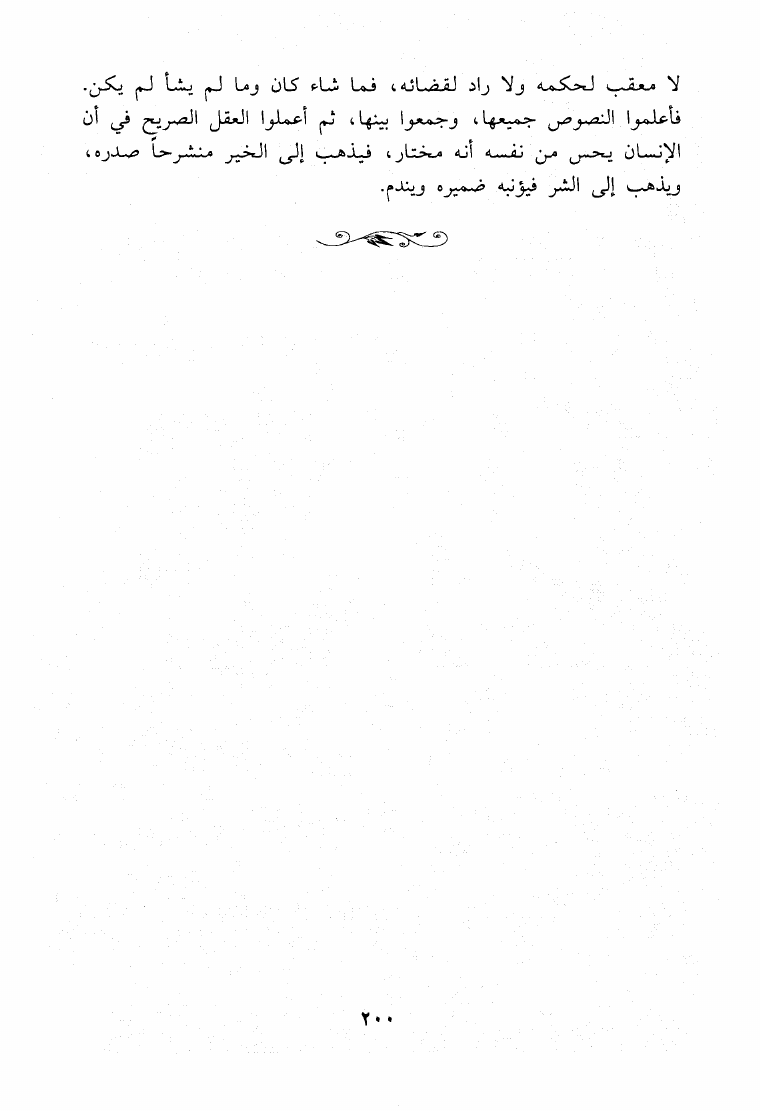 لا معقب لحكمه ولا راد لقضائه، فما شاء كان وما لم يشأ لم يكن.
فأعلموا النصوص جميعها، وجمعوا بينها، ثم أعملوا العقل الصريح في أن
الإنسان يحس من نفسه أنه مختار، فيذهب إلى الخير منشرحاً صدره،
ويذهب إلى الشر فيؤنبه ضميره ويندم.
٢٠٠